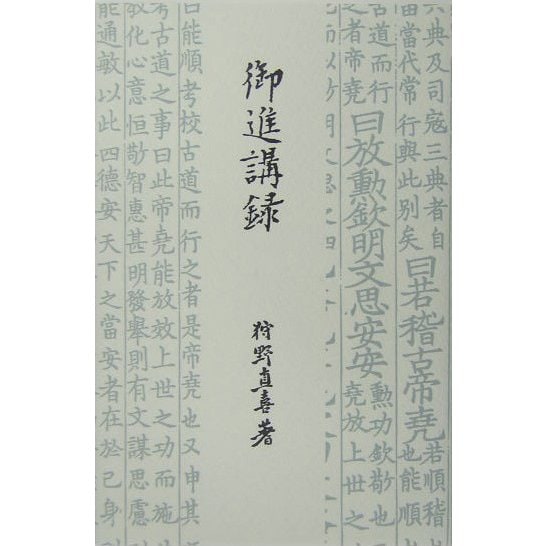 六典及司寇三典者自
曰若稽古帝堯
若順稽
也能順
當代常行與此別矣
古道而行
之者帝堯
曰放勳欽明文思安安
勳功欽敬
堯放上世之
御進講録
狩野直喜著
曰能順考校古道而行之者是帝堯也又申其
考古道之事曰此帝堯能放效上世之功而施
教化心意恒敬智惠甚明發舉則有文謀思慮
能通敏以此四德安天下之當安者在於己身